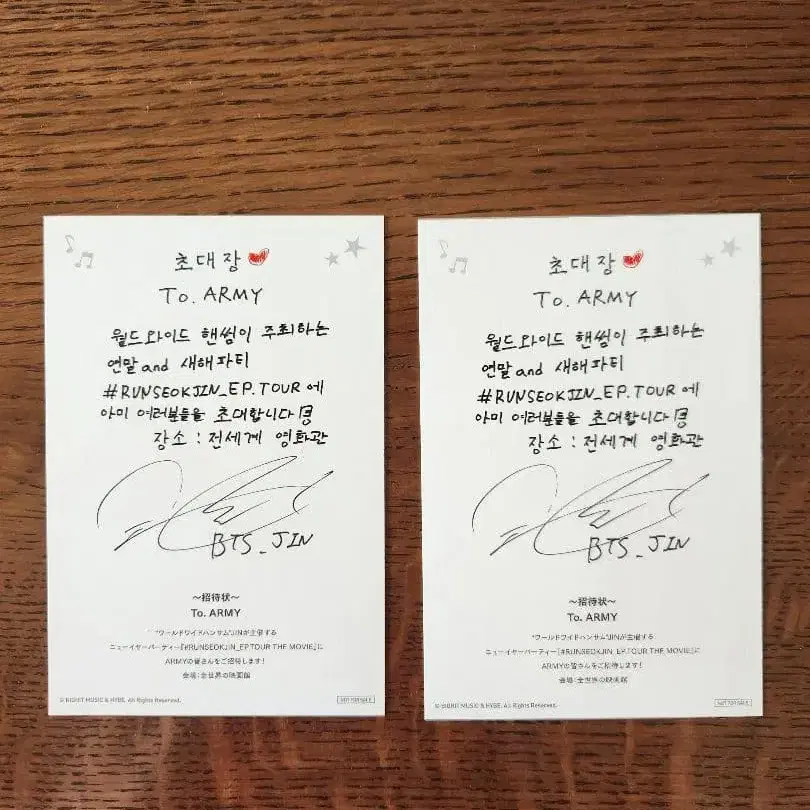 초대장
To. ARMY
월드와이드 핸썸이 주최하는
연말and 새해파티
#RUNSEOKJIN_EP.TOUR에
아미 여러분들을 초대합니다
장소 : 전세계 영화관
BTS_JIN
~招待状~
To. ARMY
"ワールドワイドハンサム"JINが主催する
ニューイヤーパーティー『#RUNSEOKJIN_EP.TOUR THE MOVIE』に
ARMYの皆さんをご招待します!
会場:全世界の映画館
© BIGHIT MUSIC & HYBE. All Rights Reserved.
NOT FOR SALE
초대장
To. ARMY
월드와이드 핸썸이 주최하는
연말and 새해파티
#RUNSEOKJIN_EP.TOUR에
아미 여러분들을 초대합니다
장소 : 전세계 영화관
BTS_JIN
~招待状~
To. ARMY
"ワールドワイドハンサム"JINが主催する
ニューイヤーパーティー『#RUNSEOKJIN_EP.TOUR THE MOVIE』に
ARMYの皆さんをご招待します!
会場:全世界の映画館
© BIGHIT MUSIC & HYBE. All Rights Reserved.
NOT FOR SALE